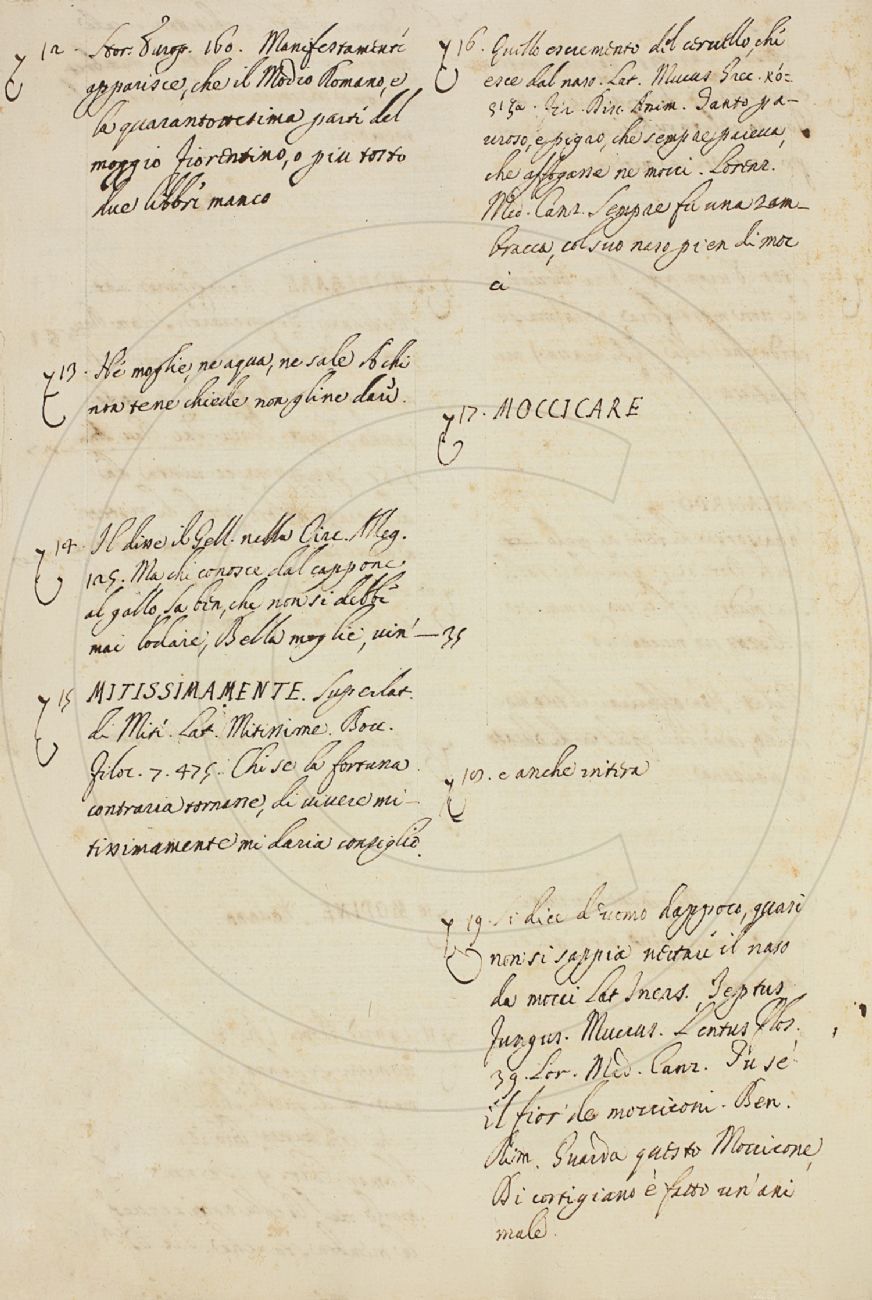 12. Stor. Europ. 160. Manifestamenti
apparisce, che il Modio Romano, e
la quarantottesima parti del
moggio fiorentino, o piu tosto
due libbri manco
13. Né moglie, ne aqua, ne sale A chi
non te ne chiede non gline dari.
14. Il disse il Gell. nella Circ. Alleg.
125. Ma chi conosce dal cappone
al gallo, sa ben, che non si debbi
mai lodare, Bella moglie, vin' — 35
15 MITISSIMAMENTE. Superlat.
di Miti. Lat. Mitissime. Bocc.
Filoc. 7. 475. Chi se la fortuna
contraria tornasse, di vivere mi-
tissimamente mi daria consiglio.
16. Quello escremento del cervello, chi
esce dal naso. Lat. Mucus Grec. κό-
ριζα. Fir. Dis. Anim. Tanto pa-
uroso, e pigro, che sempre pareva,
che affogasse ne mocci. Lorenz.
Med. Canz. Sempre fu una zam-
bracca, col suo naso pien di moc
ci
17. MOCCICARE
18. e anche intera
19. Si dice d'uomo dappoco, quasi
non si sappia nettari il naso
da mocci Lat Iners. Ineptus
Fungus. Muccus. Lentus Flos.
39. Lor. Med. Canz. Tu se'
il fior de mocciconi. Ben.
Rim. Guarda questo Moccicone,
Di cortigiano è fatto un' ani
male.